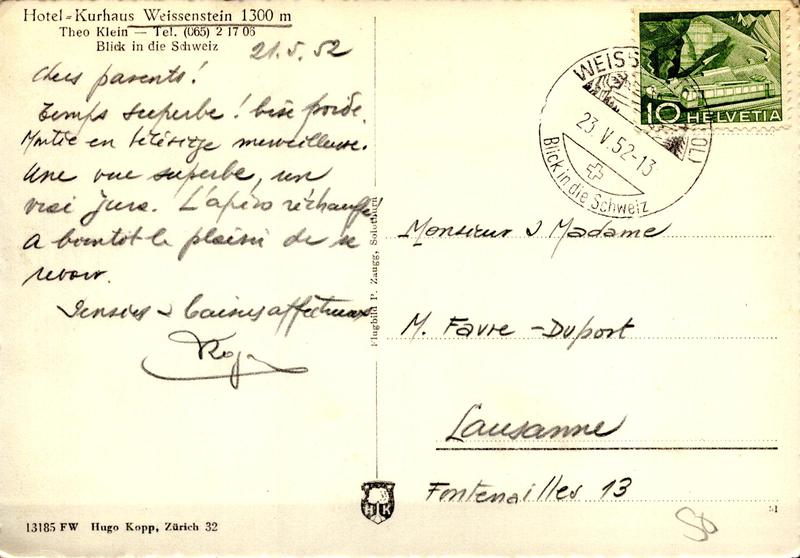 Hotel-Kurhaus Weissenstein 1300 m
Theo Klein — Tel. (065) 2 17 06
Blick in die Schweiz
21.5.52
Chers parents!
Temps superbe! bise froide.
Montée en télésiège merveilleuse.
Une vue superbe, un
vrai Jura. L'apéro réchauffe!
A bientôt le plaisir de se
revoir.
Pensées & baisers affectueux
Roger
Flugbild P. Zaugg, Solothurn
HK
13185 FW Hugo Kopp, Zürich 32
10 HELVETIA
WEISS
23.V.52-13
Blick in die Schweiz
Monsieur & Madame
M. Favre-Duport
Lausanne
Fontenailles 13